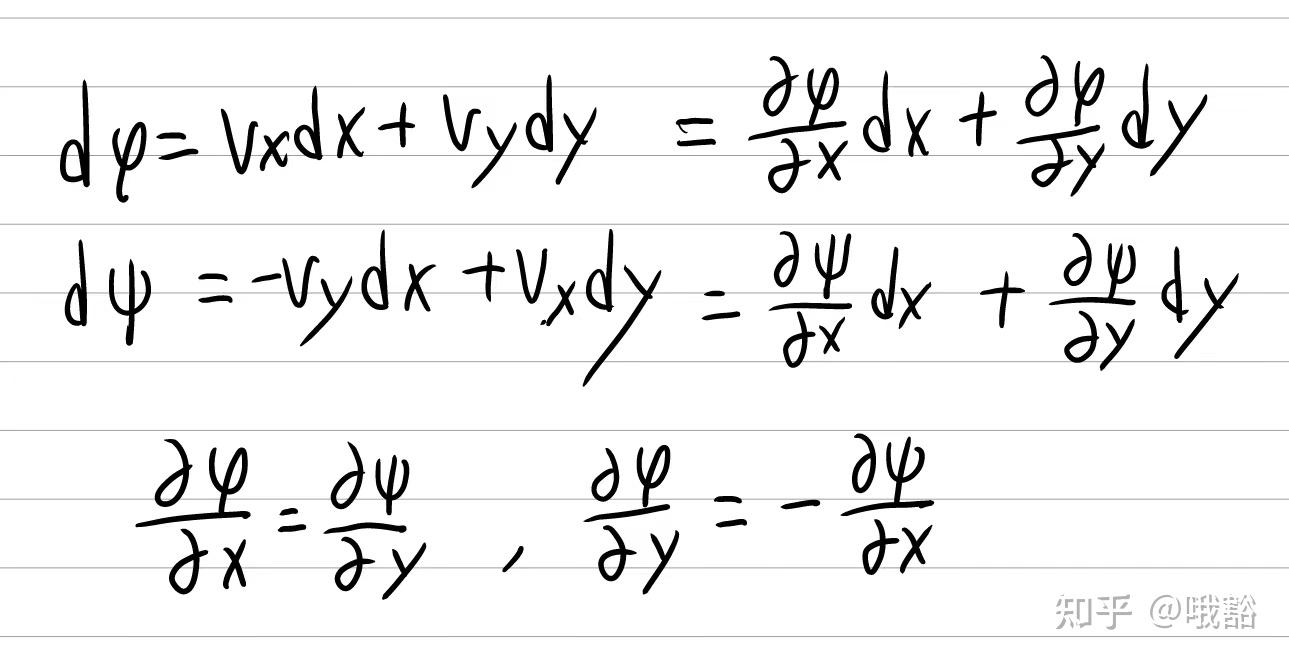 dφ = Vxdx + Vydy = ∂φ/∂x dx + ∂φ/∂y dy
dψ = -Vydx + Vxdy = ∂ψ/∂x dx + ∂ψ/∂y dy
∂φ/∂x = ∂ψ/∂y , ∂φ/∂y = - ∂ψ/∂x
知乎 @哦豁